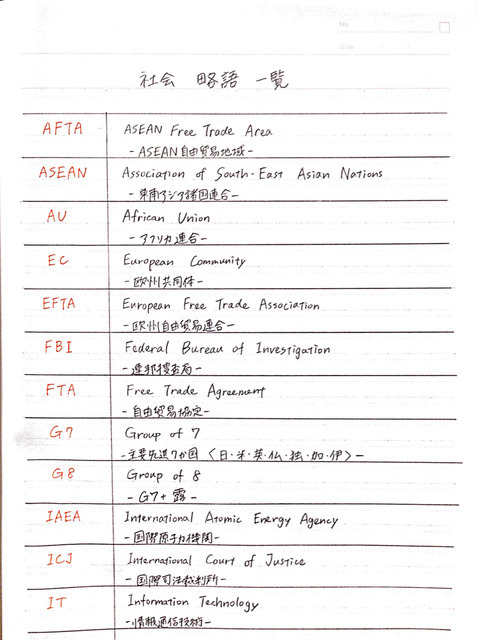 No.
Date
社会 略語 一覧
AFTA ASEAN Free Trade Area
-ASEAN自由貿易地域-
ASEAN Association of South-East Asian Nations
-東南アジア諸国連合-
AU African Union
-アフリカ連合-
EC European Community
-欧州共同体-
EFTA European Free Trade Association
-欧州自由貿易連合-
FBI Federal Bureau of Investigation
-連邦捜査局-
FTA Free Trade Agreement
-自由貿易協定-
G7 Group of 7
-主要先進7か国〈日・米・英・仏・独・加・伊〉-
G8 Group of 8
-G7+露-
IAEA International Atomic Energy Agency
-国際原子力機関-
ICJ International Court of Justice
-国際司法裁判所-
IT Information Technology
-情報通信技術-